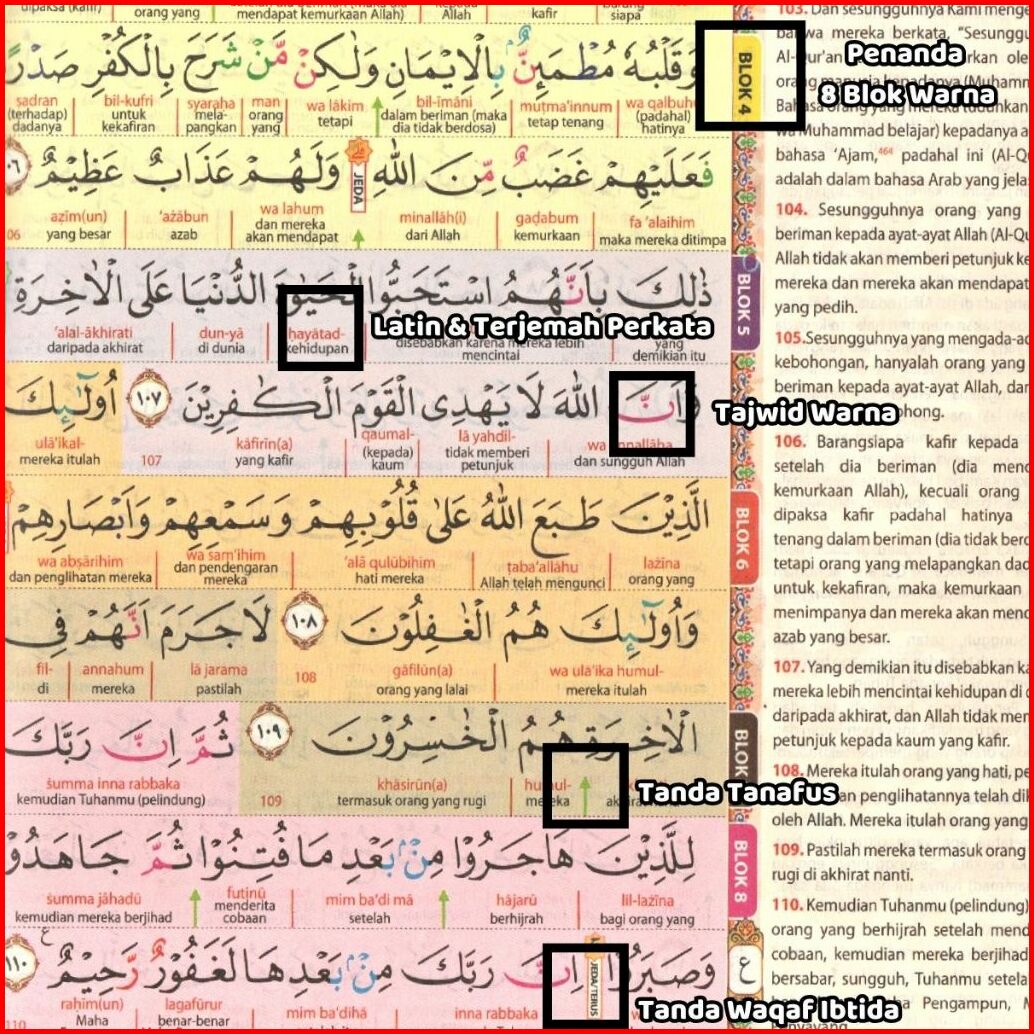 dipaksa (kafir) orang yang mendapat kemurkaan Allah) Allah kafir siapa
وَقَلْبُهٗ مُطْمَىِٕنٌّۢ بِالْاِيْمَانِ وَلٰكِنْ مَّنْ شَرَحَ بِالْكُفْرِ صَدْرًا
ṣadran bil-kufri syaraḥa man wa lākim bil-īmāni muṭma'innum wa qalbuhū
(terhadap) untuk mela- orang tetapi dalam beriman (maka tetap tenang (padahal)
dadanya kekafiran pangkan yang dia tidak berdosa) hatinya
BLOK 4
Penanda
8 Blok Warna
فَعَلَيْهِمْ غَضَبٌ مِّنَ اللّٰهِ ۚوَلَهُمْ عَذَابٌ عَظِيْمٌ
JEDA
aẓīm(un) 'ażābun wa lahum minallāh(i) gaḍabum fa 'alaihim
yang besar azab dan mereka dari Allah kemurkaan maka mereka ditimpa
akan mendapat
06
ذٰلِكَ بِاَنَّهُمُ اسْتَحَبُّوا الْحَيٰوةَ الدُّنْيَا عَلَى الْاٰخِرَةِ
'alal-ākhirati dun-yā ḥayātad-
daripada akhirat di dunia kehidupan disebabkan karena mereka lebih yang
mencintai demikian itu
Latin & Terjemah Perkata
BLOK 5
وَاَنَّ اللّٰهَ لَا يَهْدِى الْقَوْمَ الْكٰفِرِيْنَ ١٠٧ اُولٰۤىِٕكَ
ulā'ikal- kāfirīn(a) qaumal- lā yahdil- wa annallāha
mereka itulah yang kafir (kepada) tidak memberi dan sungguh Allah
107 kaum petunjuk
Tajwid Warna
الَّذِيْنَ طَبَعَ اللّٰهُ عَلٰى قُلُوْبِهِمْ وَسَمْعِهِمْ وَاَبْصَارِهِمْ
wa abṣārihim wa sam'ihim 'alā qulūbihim ṭaba'allāhu lażīna
dan penglihatan mereka dan pendengaran hati mereka Allah telah mengunci orang yang
mereka
BLOK 6
وَاُولٰۤىِٕكَ هُمُ الْغٰفِلُوْنَ ١٠٨ لَا جَرَمَ اَنَّهُمْ فِى
fil- annahum lā jarama gāfilūn(a) wa ulā'ika humul-
di mereka pastilah 108 orang yang lalai mereka itulah
الْاٰخِرَةِ هُمُ الْخٰسِرُوْنَ ١٠٩ ثُمَّ اِنَّ رَبَّكَ
ṡumma inna rabbaka khāsirūn(a) humul-
kemudian Tuhanmu (pelindung) 109 termasuk orang yang rugi mereka
BLOK
Tanda Tanafus
لِلَّذِيْنَ هَاجَرُوْا مِنْۢ بَعْدِ مَا فُتِنُوْا ثُمَّ جَاهَدُوْا
ṡumma jāhadū futinū mim ba'di mā hājarū lil-lażīna
kemudian mereka berjihad menderita setelah berhijrah bagi orang yang
cobaan
BLOK 8
وَصَبَرُوْا اِنَّ رَبَّكَ مِنْۢ بَعْدِهَا لَغَفُوْرٌ رَّحِيْمٌ ١١٠
JEDA/TERUS
ع
raḥīm(un) lagafūrur mim ba'dihā inna rabbaka
Maha benar-benar
110
Tanda Waqaf Ibtida
103. Dan sesungguhnya Kami
bahwa mereka berkata, "Sesungguhnya
Al-Qur'an
orang manusia kepadanya
Bahasa
Muhammad belajar) kepadanya
bahasa 'Ajam,⁴⁶⁴ padahal ini
adalah dalam bahasa Arab yang
104. Sesungguhnya orang yang
beriman kepada ayat-ayat Allah
Allah tidak akan memberi petunjuk
mereka dan mereka akan mendapat
yang pedih.
105.Sesungguhnya yang
kebohongan, hanyalah orang yang
beriman kepada ayat-ayat Allah,
106. Barangsiapa kafir kepada
setelah dia beriman (dia
kemurkaan Allah), kecuali orang
dipaksa kafir padahal hatinya
tenang dalam beriman (dia tidak
tetapi orang yang melapangkan
untuk kekafiran, maka kemurkaan
menimpanya dan mereka akan
azab yang besar.
107. Yang demikian itu disebabkan
mereka lebih mencintai kehidupan di
daripada akhirat, dan Allah tidak
petunjuk kepada kaum yang kafir.
108. Mereka itulah orang yang hati,
dan penglihatannya telah
oleh Allah. Mereka itulah orang yang
109. Pastilah mereka termasuk orang
rugi di akhirat nanti.
110. Kemudian Tuhanmu (pelindung)
orang yang berhijrah setelah
cobaan, kemudian mereka berjihad
bersabar, sungguh, Tuhanmu
Pengampun,